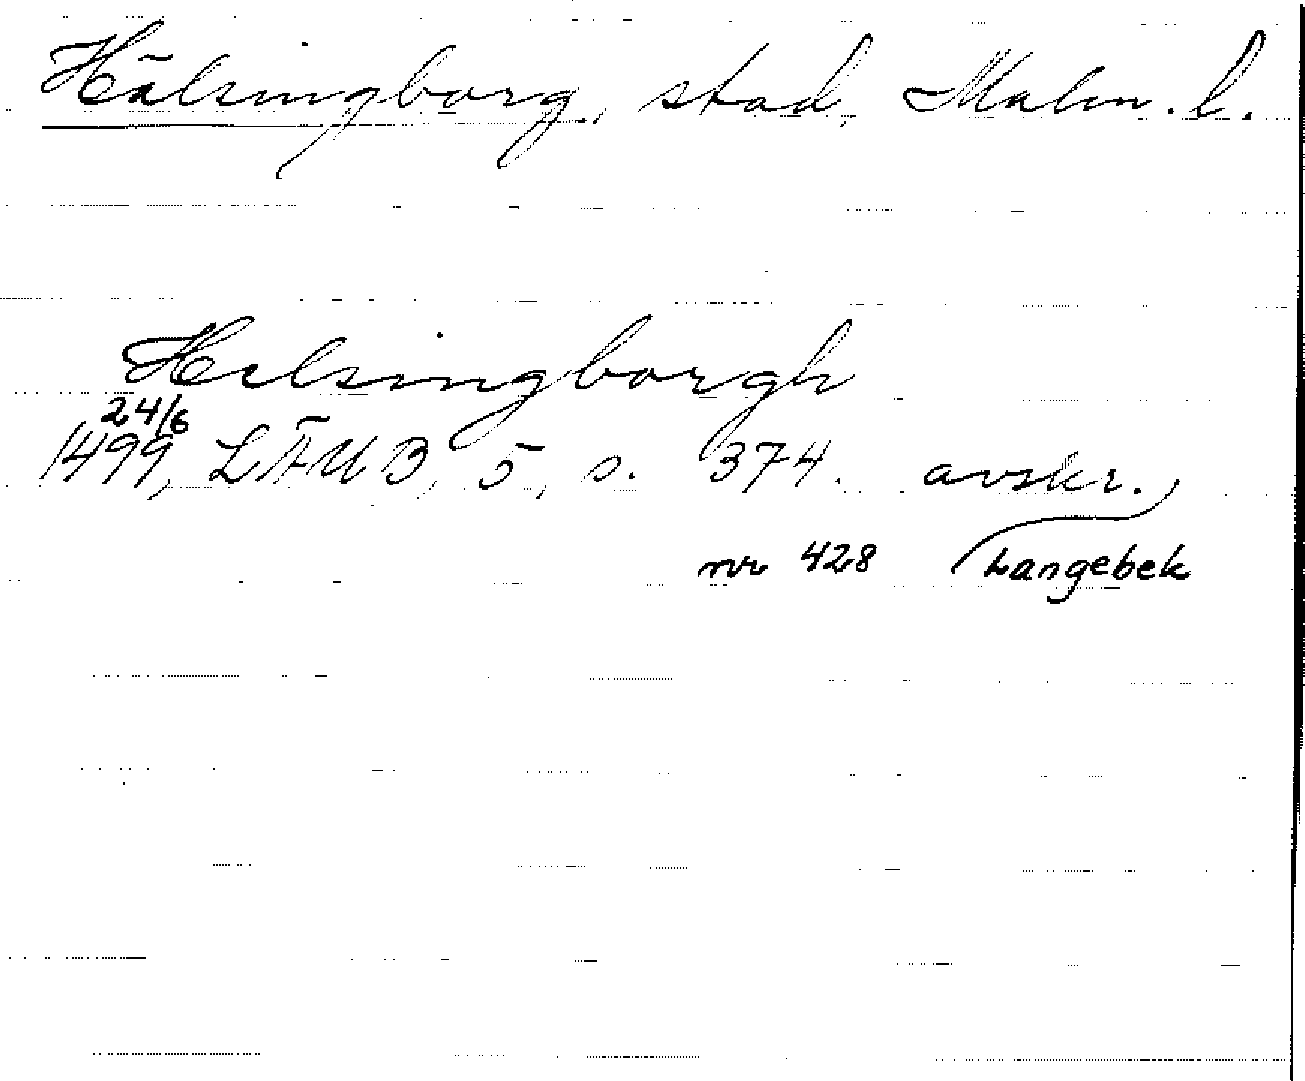 Hälsingborg, stad, Malm. l.
Helsingborgh
24/6
1499, LÄUB, 5, s. 374. avskr.
nr 428 Langebek